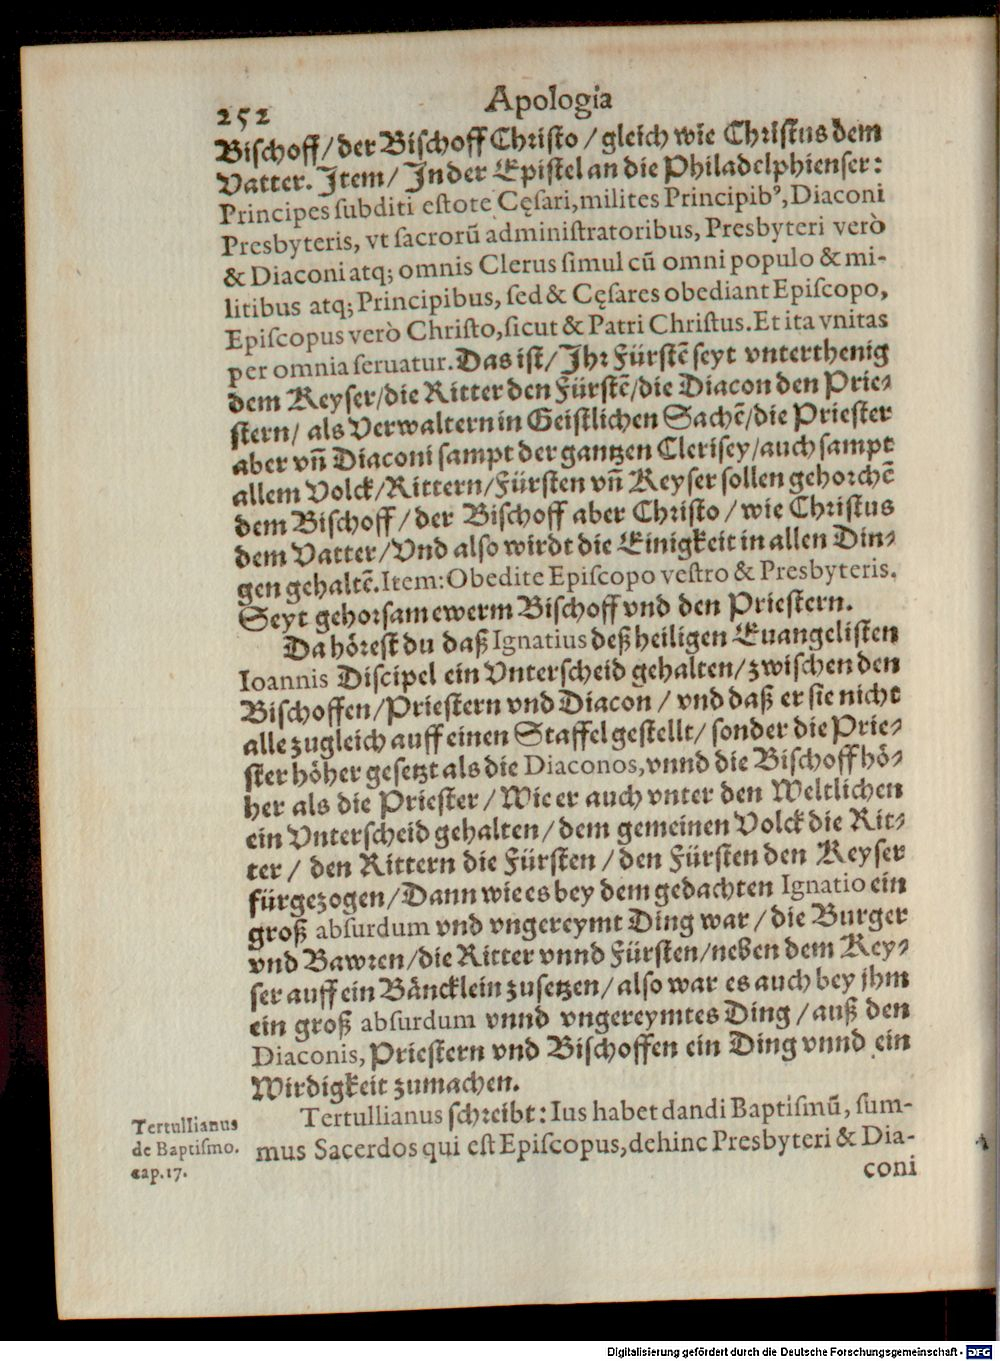 252 Apologia
Bischoff/der Bischoff Christo/gleich wie Christus dem
Vatter. Item/ In der Epistel an die Philadelphienser:
Principes subditi estote Cęsari, milites Principibꝰ, Diaconi
Presbyteris, vt sacrorũ administratoribus, Presbyteri verò
& Diaconi atq; omnis Clerus simul cũ omni populo & mi-
litibus atq; Principibus, sed & Cęsares obediant Episcopo,
Episcopus verò Christo, sicut & Patri Christus. Et ita vnitas
per omnia seruatur. Das ist/ Ihr Fürstẽ seyt vnterthenig
dem Keyser/die Ritter den Fürstẽ/die Diacon den Prie-
stern/ als Verwaltern in Geistlichen Sachẽ/die Priester
aber vñ Diaconi sampt der gantzen Clerisey/auch sampt
allem Volck/Rittern/Fürsten vñ Keyser sollen gehorchẽ
dem Bischoff/der Bischoff aber Christo/wie Christus
dem Vatter/Vnd also wirdt die Einigkeit in allen Din-
gen gehaltẽ. Item: Obedite Episcopo vestro & Presbyteris.
Seyt gehorsam ewerm Bischoff vnd den Priestern.
Da hörest du daß Ignatius deß heiligen Euangelisten
Ioannis Discipel ein Vnterscheid gehalten/zwischen den
Bischoffen/Priestern vnd Diacon/ vnd daß er sie nicht
alle zugleich auff einen Staffel gestellt/ sonder die Prie-
ster höher gesetzt als die Diaconos, vnnd die Bischoff hö-
her als die Priester/Wie er auch vnter den Weltlichen
ein Vnterscheid gehalten/dem gemeinen Volck die Rit-
ter/ den Rittern die Fürsten/den Fürsten den Keyser
fürgezogen/Dann wie es bey dem gedachten Ignatio ein
groß absurdum vnd vngereymt Ding war/die Burger
vnd Bawren/die Ritter vnnd Fürsten/neben dem Key-
ser auff ein Bäncklein zusetzen/also war es auch bey jhm
ein groß absurdum vnnd vngereymtes Ding/auß den
Diaconis, Priestern vnd Bischoffen ein Ding vnnd ein
Wirdigkeit zumachen.
Tertullianus schreibt: Ius habet dandi Baptismũ, sum-
mus Sacerdos qui est Episcopus, dehinc Presbyteri & Dia-
coni
Tertullianus
de Baptismo.
cap.17.
Digitalisierung gefördert durch die Deutsche Forschungsgemeinschaft - DFG